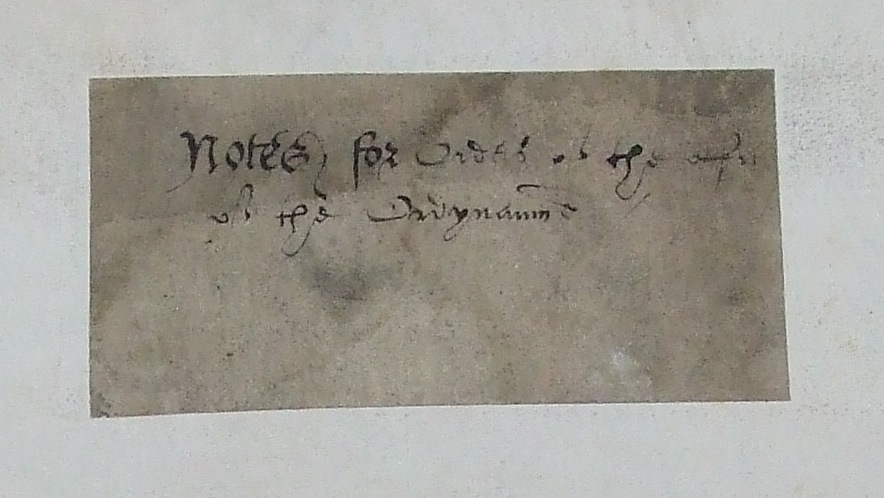 Notes for Order of the
of the Ordynaunce